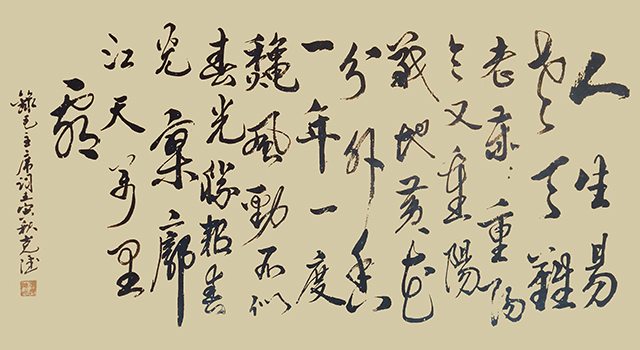 人生易
老天難
老歲々重陽
今又重陽
戰地黃花
分外香
一年一度
龝風勁不似
春光勝春
光寥廓
江天萬里
霜
錄毛主席詞壬寅秋